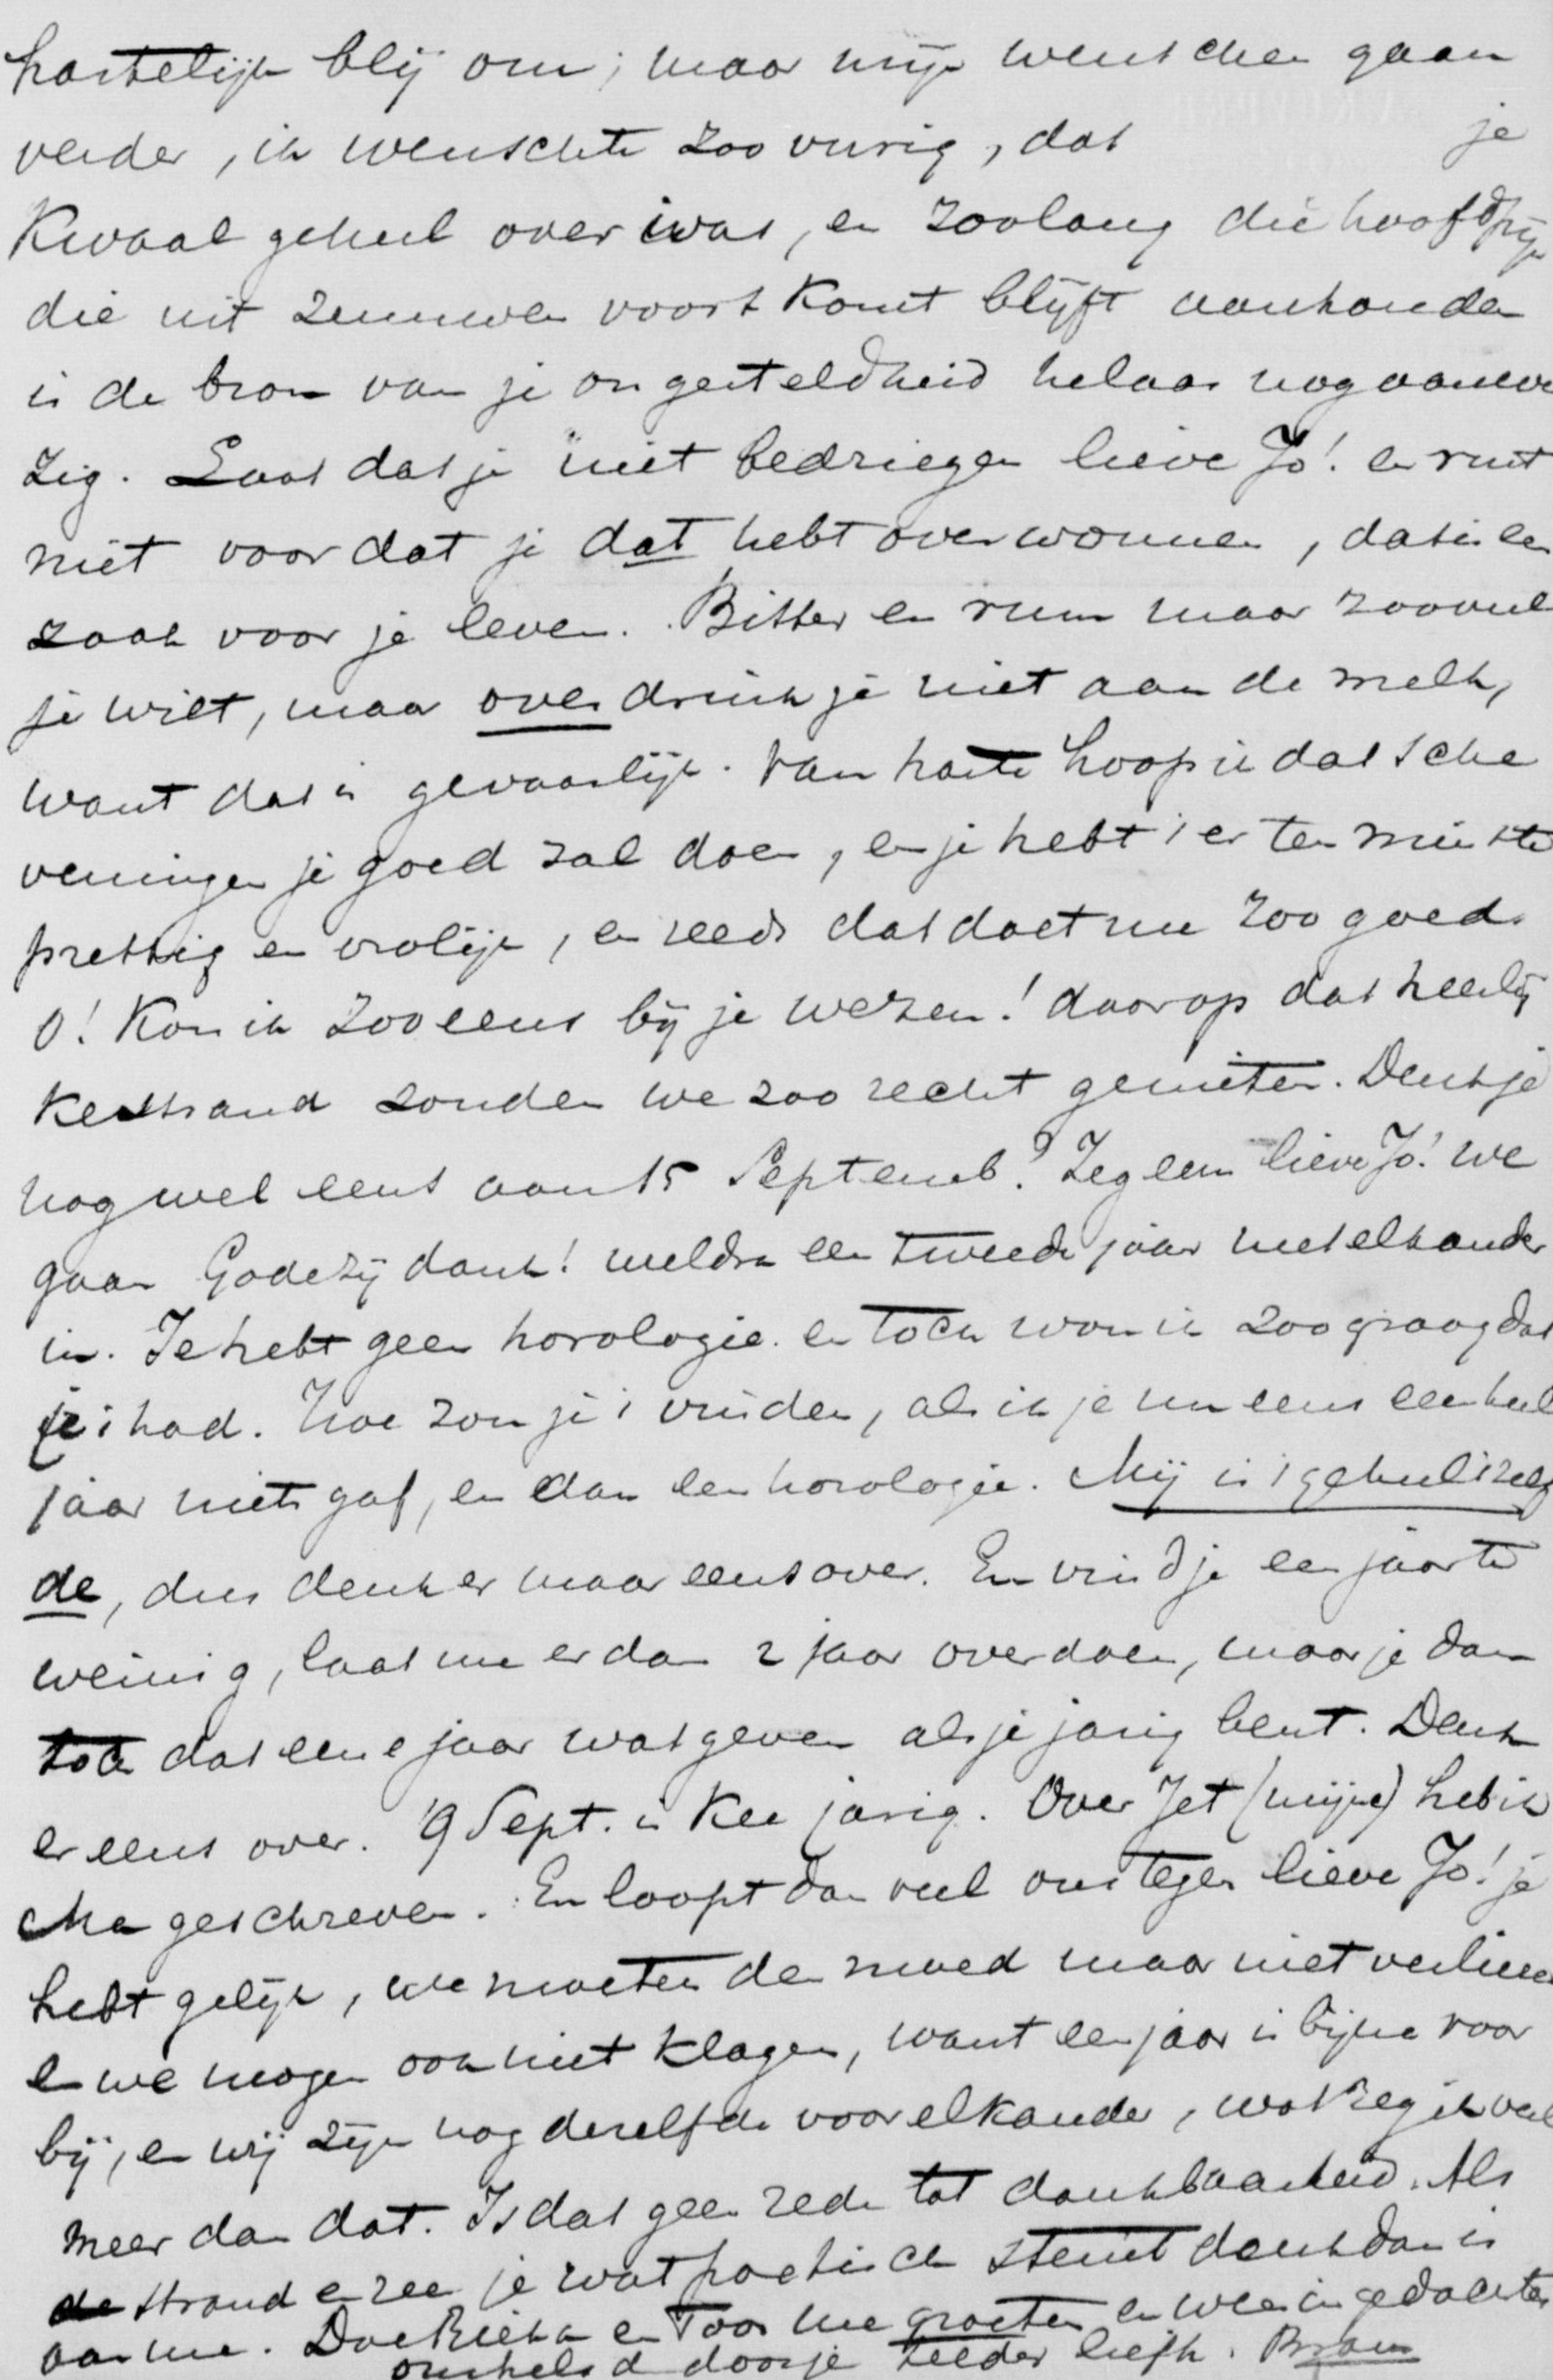 hartelijk blij om; maar mijn wenschen gaan
verder, ik wenschte zoo vurig, dat je
Kwaal geheel over was, en zoolang die hoofdpijn
die uit zenuwen voortkomt blijft aanhouden
is de bron van je ongesteldheid helaas nog aanwe
zig. Laat dat je niet bedriegen lieve Jo! en rust
niet voor dat je dat hebt overwonnen, dat is een
zaak voor je leven. Bitter en rum maar zooveel
je wilt, maar over drink je niet aan de melk,
want dat is gevaarlijk. Van harte hoop ik dat Sche
veningen je goed zal doen, en je hebt 't er ten minste
prettig en vrolijk, en reeds dat doet me zoo goed.
O! Kon ik zoo eens bij je wezen! daar op dat heerlij
ke strand zouden we zoo recht genieten. Denk je
nog wel eens aan 15 Septemb.? Zeg eens lieve Jo! we
gaan Gode zij dank! weldra een tweede jaar met elkander
in. Je hebt geen horologie en toch wou ik zoo graag dat
je 't had. Hoe zou je 't vinden, als ik je nu eens een heel
jaar niets gaf, en dan een horologie. Mij is 't geheel 't zelf
de, dus denk er maar eens over. En vind je een jaar te
weinig, laat me er dan 2 jaar over doen, maar je dan
toch dat eene jaar wat geven als je jarig bent. Denk
er eens over. 19 Sept. is Kee jarig. Over Jet (mijne) heb ik
Ma geschreven. En loopt dan veel ons tegen lieve Jo! je
hebt gelijk, we moeten den moed maar niet verliezen
en we mogen ook niet klagen, want een jaar is bijna voor
bij, en wij zijn nog dezelfde voor elkander, wat zeg ik veel
meer dan dat. Is dat geen rede tot dankbaarheid. Als
de strand en zee je wat poëtisch stemt denk dan is
aan me. Doe Rieka en Toos me groeten en wees in gedachten
omhelsd door je teeder liefh. Bram